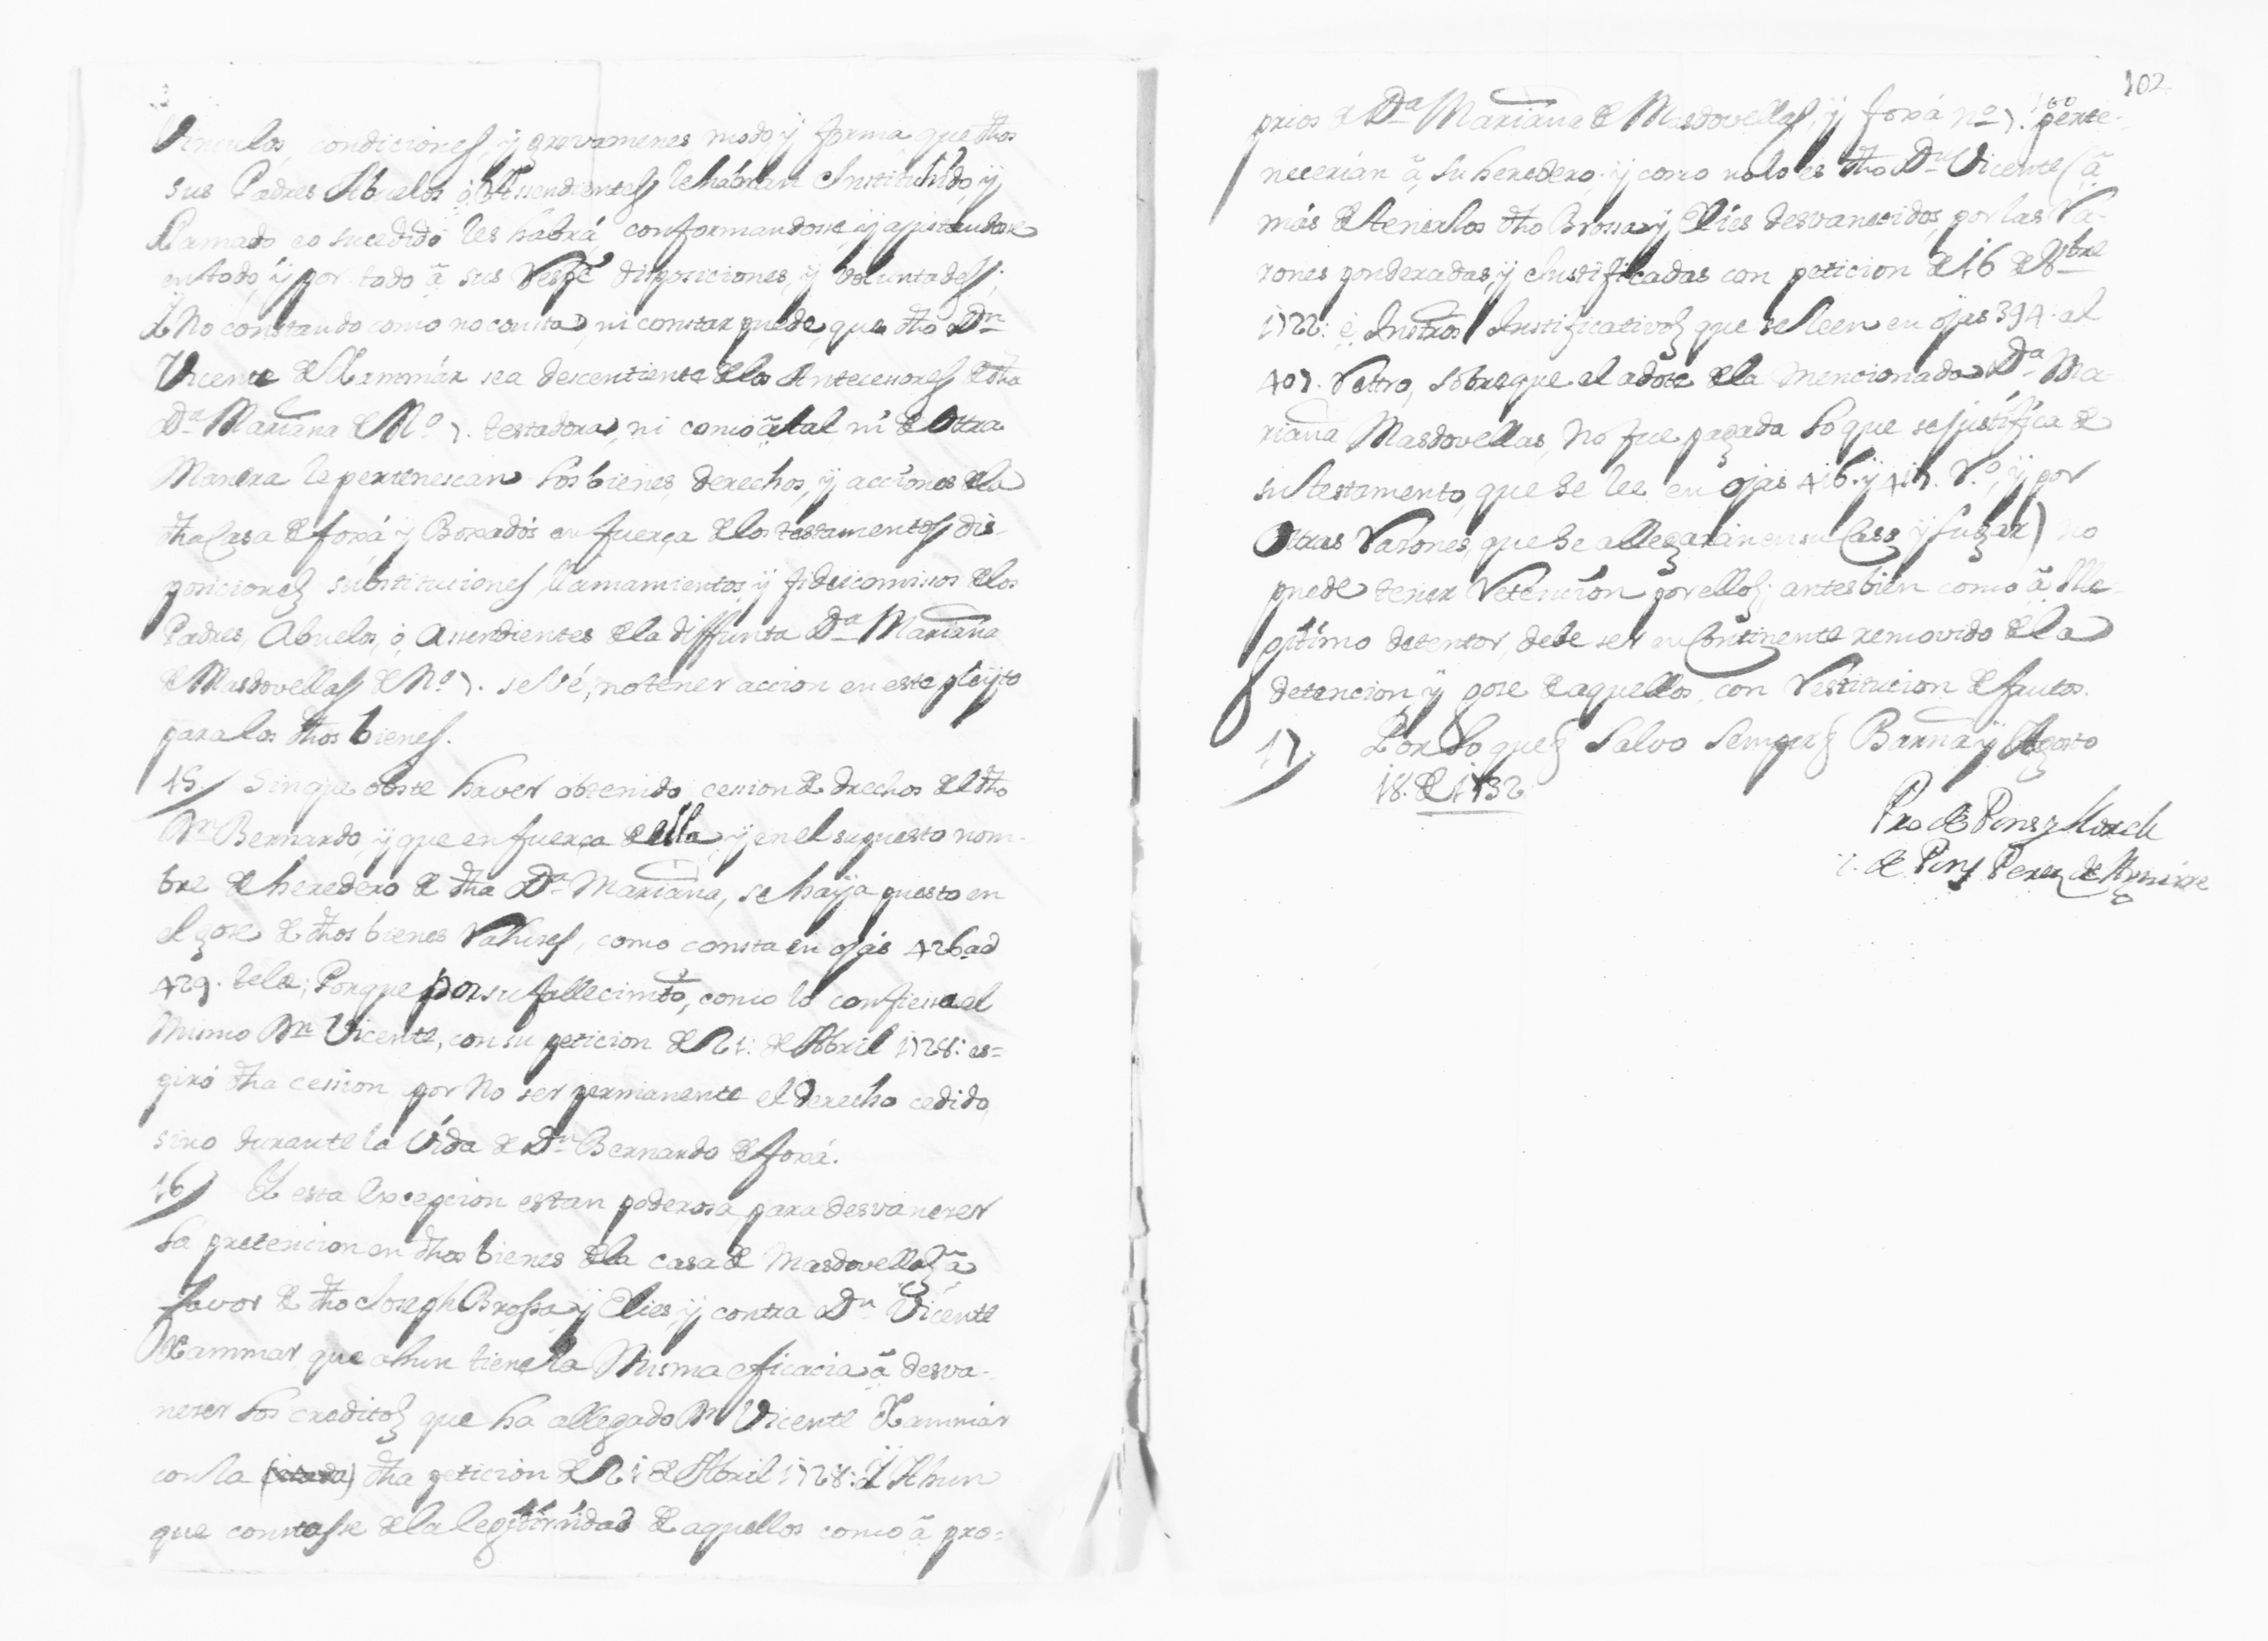 Vinculos, condiciones, y gravamenes modo y forma que dhos
sus Padres Abuelos ò Assendientes le habrian Instituhido, y
llamado eo sucedido les habrá, conformandose, y ajustandose
en todo, y por todo â sus respê disposiciones, y voluntades;
Y No constando como no consta, ni constar puede, que dho Dn
Vicente de Xammár sea descentiente de los Antecessores de dha
Da Mariana de M. 7. testadora, ni como â tal ni de Otra
Manera le pertenescan los bienes, derechos, y acciones de la
dha Casa de foxá y Boxadós en fuerça de los testamentos, dis-
posiciones, substituciones, llamamientos, y fideicomissos de los
Padres, Abuelos, ò Assendientes de la diffunta Da Mariana
de Masdovellas de No 7. se vé, no tener accion en este pleyto
para los dhos bienes.
15/ Sin que obste haver obtenido cession de drechos del dho
Dn Bernardo, y que en fuerça de ella, y en el supuesto nom-
bre de heredero de dha Da Mariana, se haÿa puesto en
el gose de dhos bienes rahises, como consta en ojas 426 ad
429. tela; Porque por su fallecimto, como lo confiessa el
Mismo Dn Vicente, con su peticion de 21: de Abril 1728: es=
piró dha cession por No ser permanente el derecho cedido,
sino durante la Vida de Dn Bernardo de foxá.
16/ Y esta Excepcion es tan poderosa para desvaneser
la pretencion en dhos bienes de la casa de Masdovellas â
favor de dho Joseph Brossa y Elies, y contra Dn Vicente
Xammar, que ahun tiene la Misma eficacia â desva-
neser los creditos que ha allegado Dn Vicente Xammár
con la (citada) dha peticion de 21 de Abril 1728: Y Ahun
que constasse de la legitimidad de aquellos como â pro=
102
prios de Da Mariana de Masdovellas, y foxá no 7. perte-
necerian â su heredero; y como no lo es dho Dn Vicente (â
más de tenerlos dho Brossa y Elies desvanecidos, por las ra-
zones ponderadas, y Justificadas con peticion de 16 de 8bre
1722: è Instros Justificativos que se leen en ojas 394. al
407. retro, sobre que el adote de la mencionada Da Ma-
riana Masdovellas, no fue pagada lo que se justifica de
su testamento, que se lee en ojas 416. y 417. r.o, y por
Otras razones, que se allegarán en su Caso, y lugar) no
puede tener retencion por ellos; antes bien como â Ille-
gitimo detentor, debe ser in Continente removido de la
detencion, y gose de aquellos, con restitucion de frutos.
17/ Por lo que Salvo semper Barna y Agosto
18. de 1732
Pro de Pons y Llorell
de Pons Perez de Aguirre